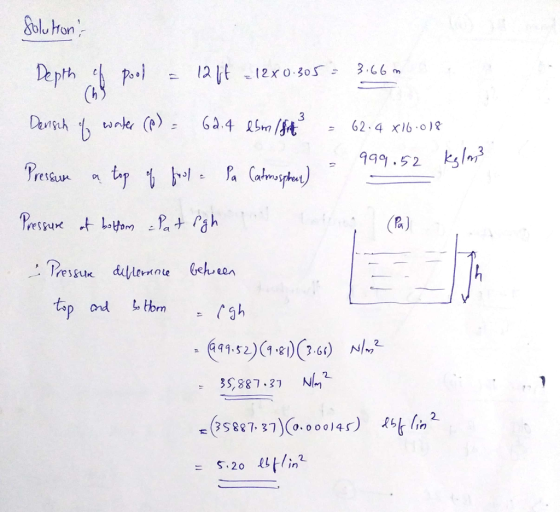 Solution:-
Depth of pool (h) = 12 ft = 12 x 0.305 = 3.66 m
Density of water (ρ) = 62.4 lbm/ft³ = 62.4 x 16.018
= 999.52 kg/m³
Pressure a top of pool = Pa (atmosphere)
Pressure at bottom = Pa + ρgh
(Pa)
h
∴ Pressure difference between
top and bottom = ρgh
= (999.52)(9.81)(3.66) N/m²
= 35,887.37 N/m²
= (35887.37)(0.000145) lbf/in²
= 5.20 lbf/in²